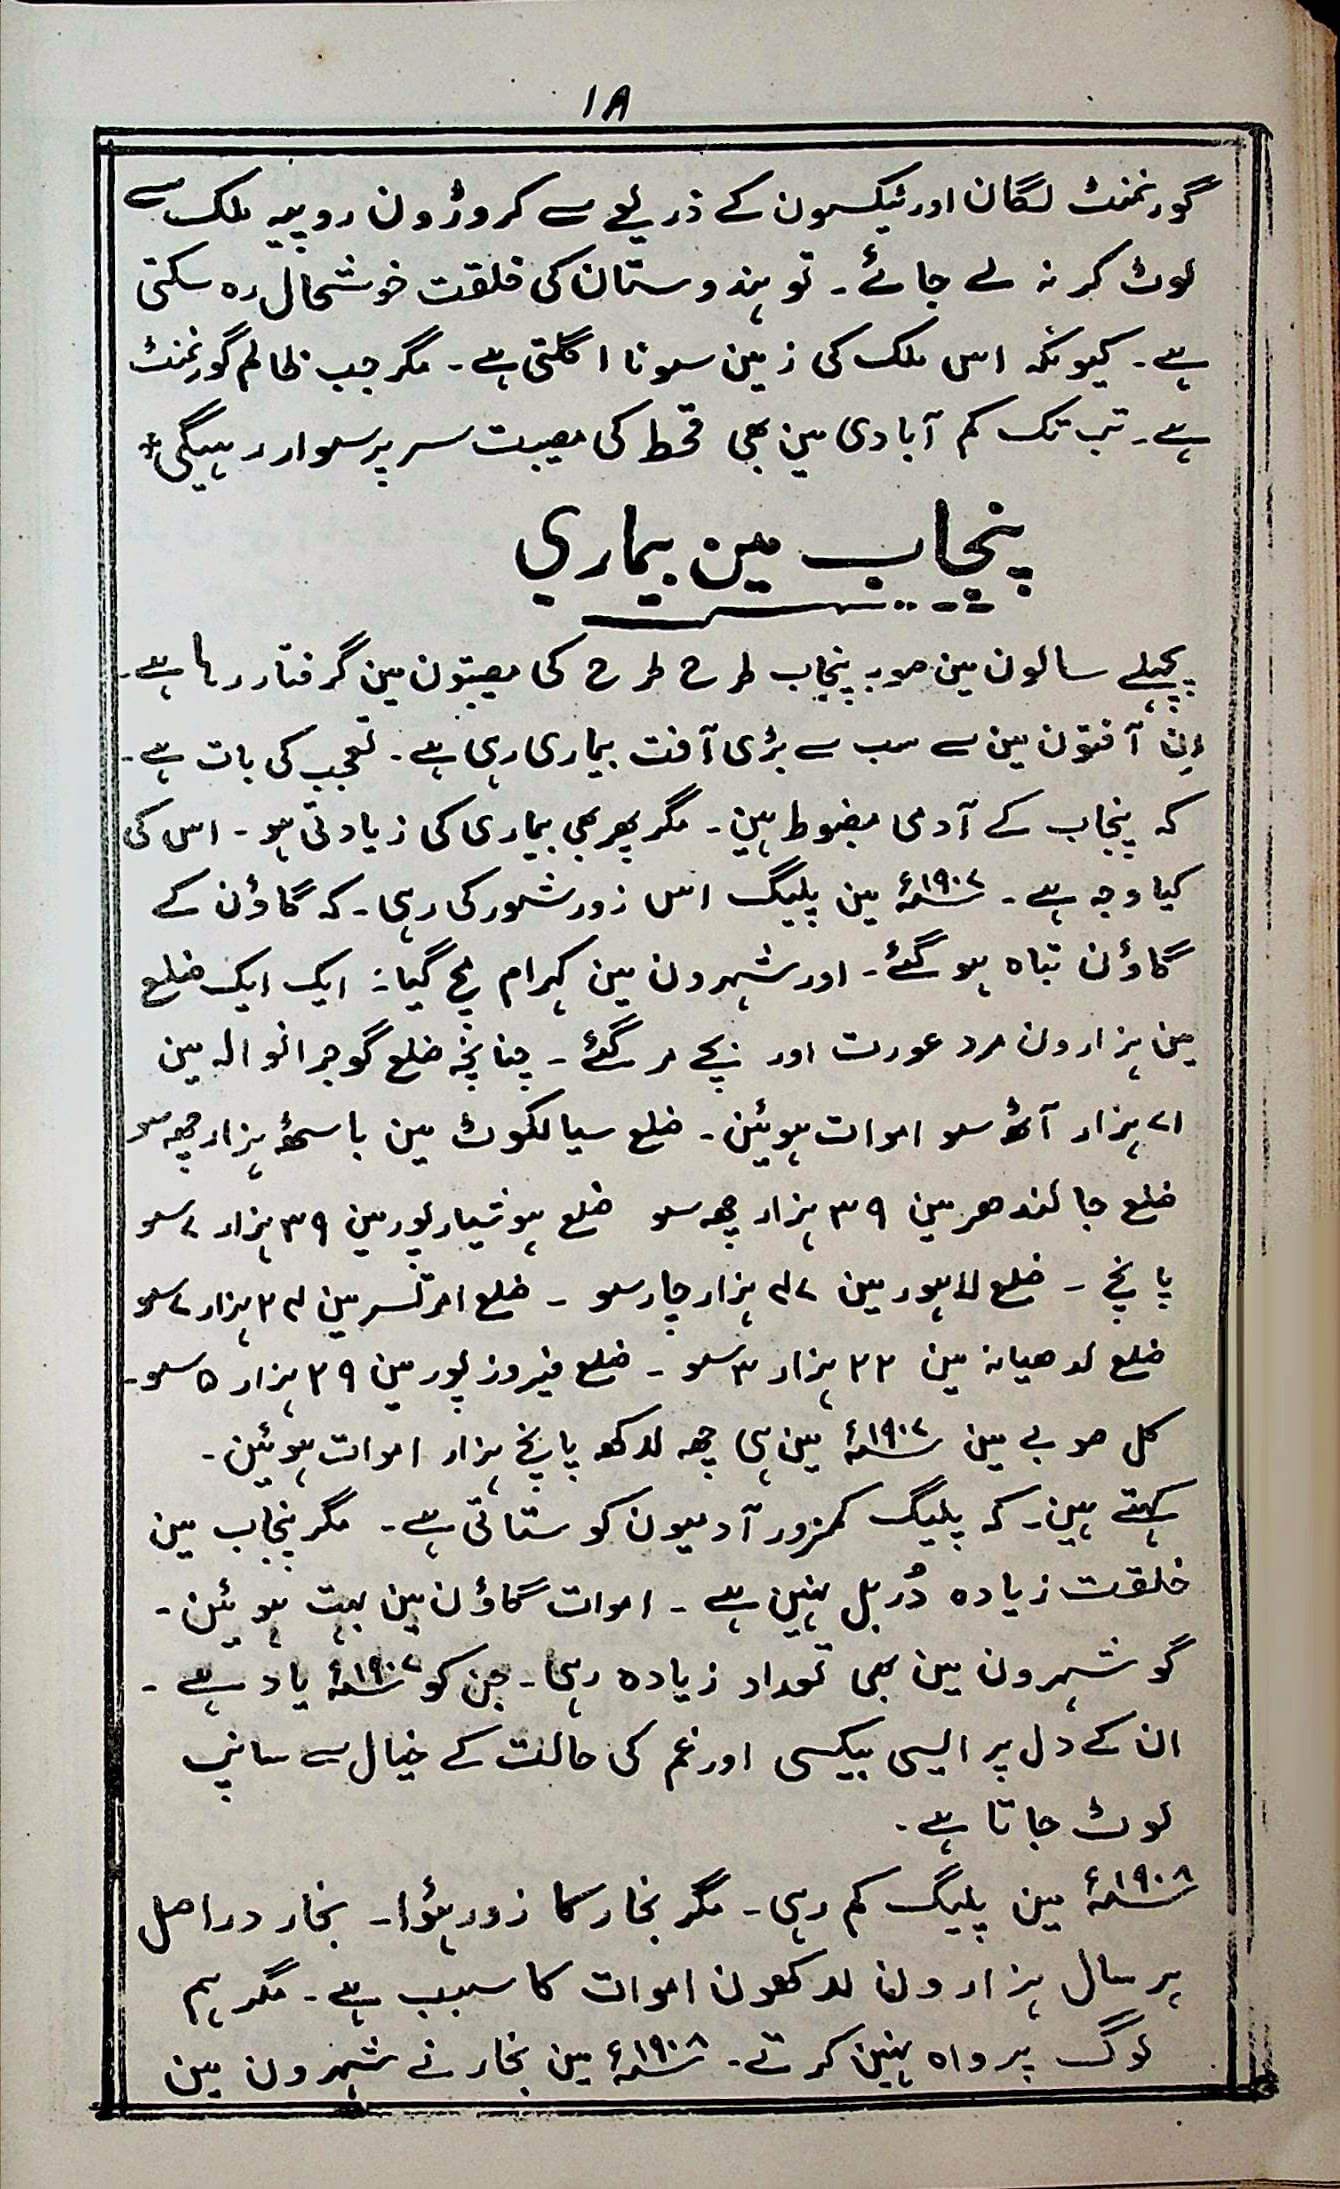 ۱۸
گورنمنٹ لگان اور ٹیکسون کے ذریعے سے کروڑون روپیہ ملک سے
لوٹ کر نہ لے جائے۔ تو ہندوستان کی خلقت خوشحال رہ سکتی
ہے۔ کیونکہ اس ملک کی زمین سونا اگلتی ہے۔ مگر جب ظالم گورنمنٹ
ہے۔ تب تک کم آبادی مین بھی قحط کی مصیبت سر پر سوار رہیگی *
پنجاب مین بیماری
پچھلے سالون مین صوبہ پنجاب طرح طرح کی مصیبتون مین گرفتار رہا ہے۔
اِن آفتون مین سے سب سے بڑی آفت بیماری رہی ہے۔ تعجب کی بات ہے۔
کہ پنجاب کے آدمی مضبوط ہین۔ مگر پھر بھی بیماری کی زیادتی ہو۔ اس کی
کیا وجہ ہے۔ ۱۹۰۷ء مین پلیگ اس زور شور کی رہی۔ کہ گاؤن کے
گاؤن تباہ ہو گئے۔ اور شہرون مین کہرام مچ گیا۔ ایک ایک ضلع
مین ہزارون مرد عورت اور بچے مر گئے۔ چنانچہ ضلع گوجرانوالہ مین
۷۱ ہزار آٹھ سو اموات ہوئین۔ ضلع سیالکوٹ مین باسٹھ ہزار چھ سو
ضلع جالندھر مین ۳۹ ہزار چھ سو ضلع ہوشیارپور مین ۳۹ ہزار ۷ سو
پانچ۔ ضلع لاہور مین ۴۷ ہزار چار سو۔ ضلع امرتسر مین ۲۴ ہزار ۷ سو
ضلع لدھیانہ مین ۲۲ ہزار ۳ سو۔ ضلع فیروزپور مین ۲۹ ہزار ۵ سو۔
کل صوبے مین ۱۹۰۷ء مین ہی چھ لاکھ پانچ ہزار اموات ہوئین۔
کہتے ہین۔ کہ پلیگ کمزور آدمیون کو ستاتی ہے۔ مگر پنجاب مین
خلقت زیادہ دُربل نہین ہے۔ اموات گاؤن مین بہت ہوئین۔
گو شہرون مین بھی تعداد زیادہ رہی۔ جن کو ۱۹۰۷ء یاد ہے۔
ان کے دل پر ایسی بیکسی اور غم کی حالت کے خیال سے سانپ
لوٹ جاتا ہے۔
۱۹۰۸ء مین پلیگ کم رہی۔ مگر بخار کا زور ہؤا۔ بخار دراصل
ہر سال ہزارون لاکھون اموات کا سبب ہے۔ مگر ہم
لوگ پرواہ نہین کرتے۔ ۱۹۰۸ء مین بخار نے شہرون مین